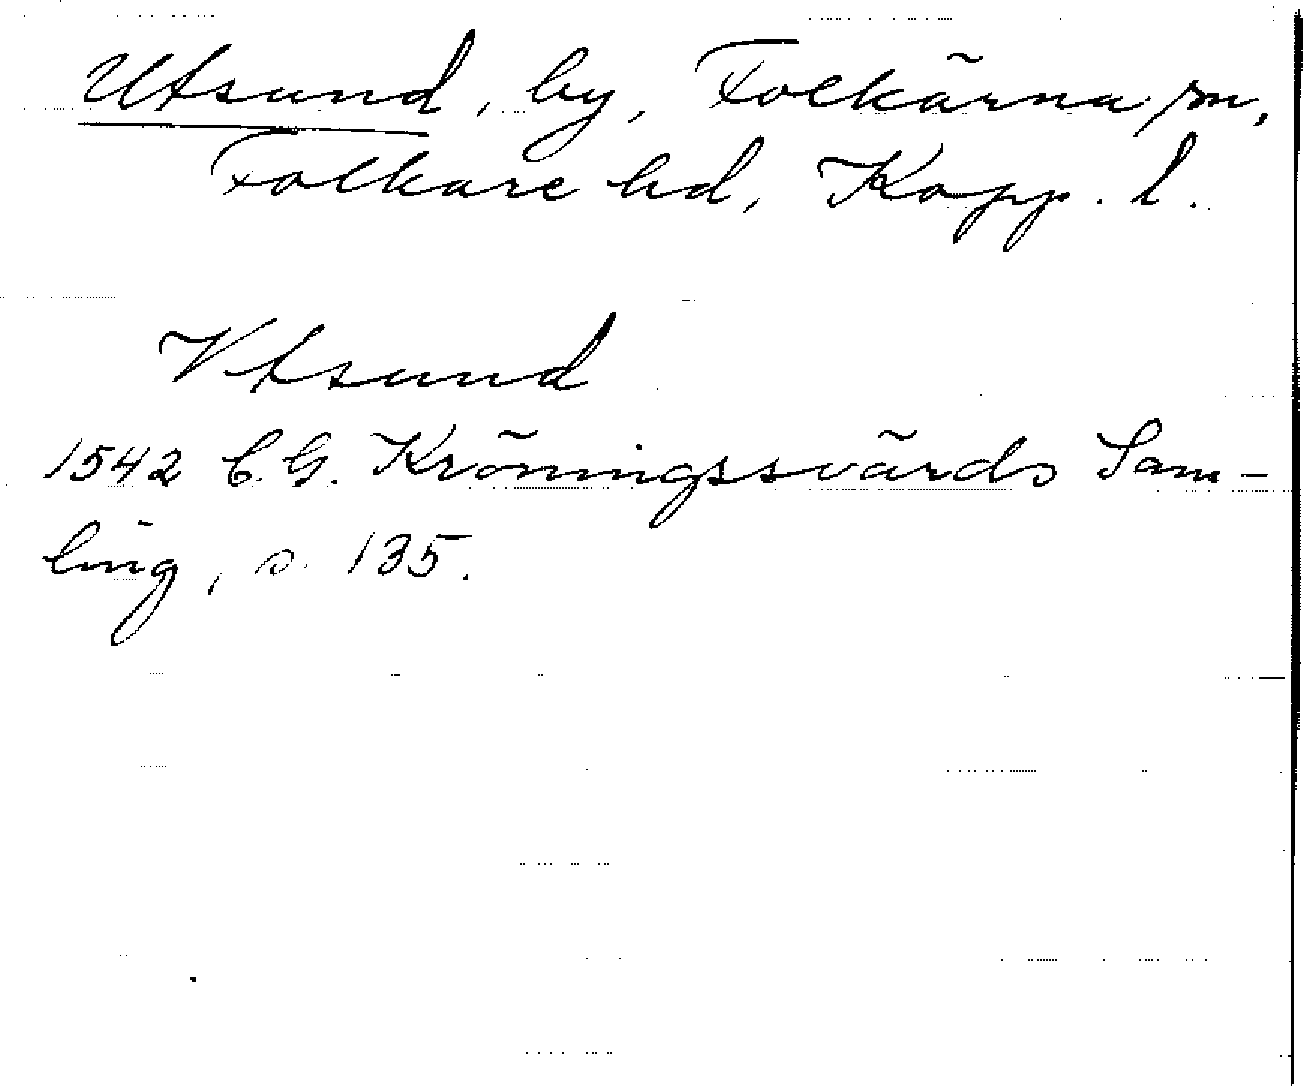 Utsund, by, Folkärna sn,
Folkare hd, Kopp. l.
Vtsund
1542 C.G. Kröningssvärds Sam-
ling, s. 135.